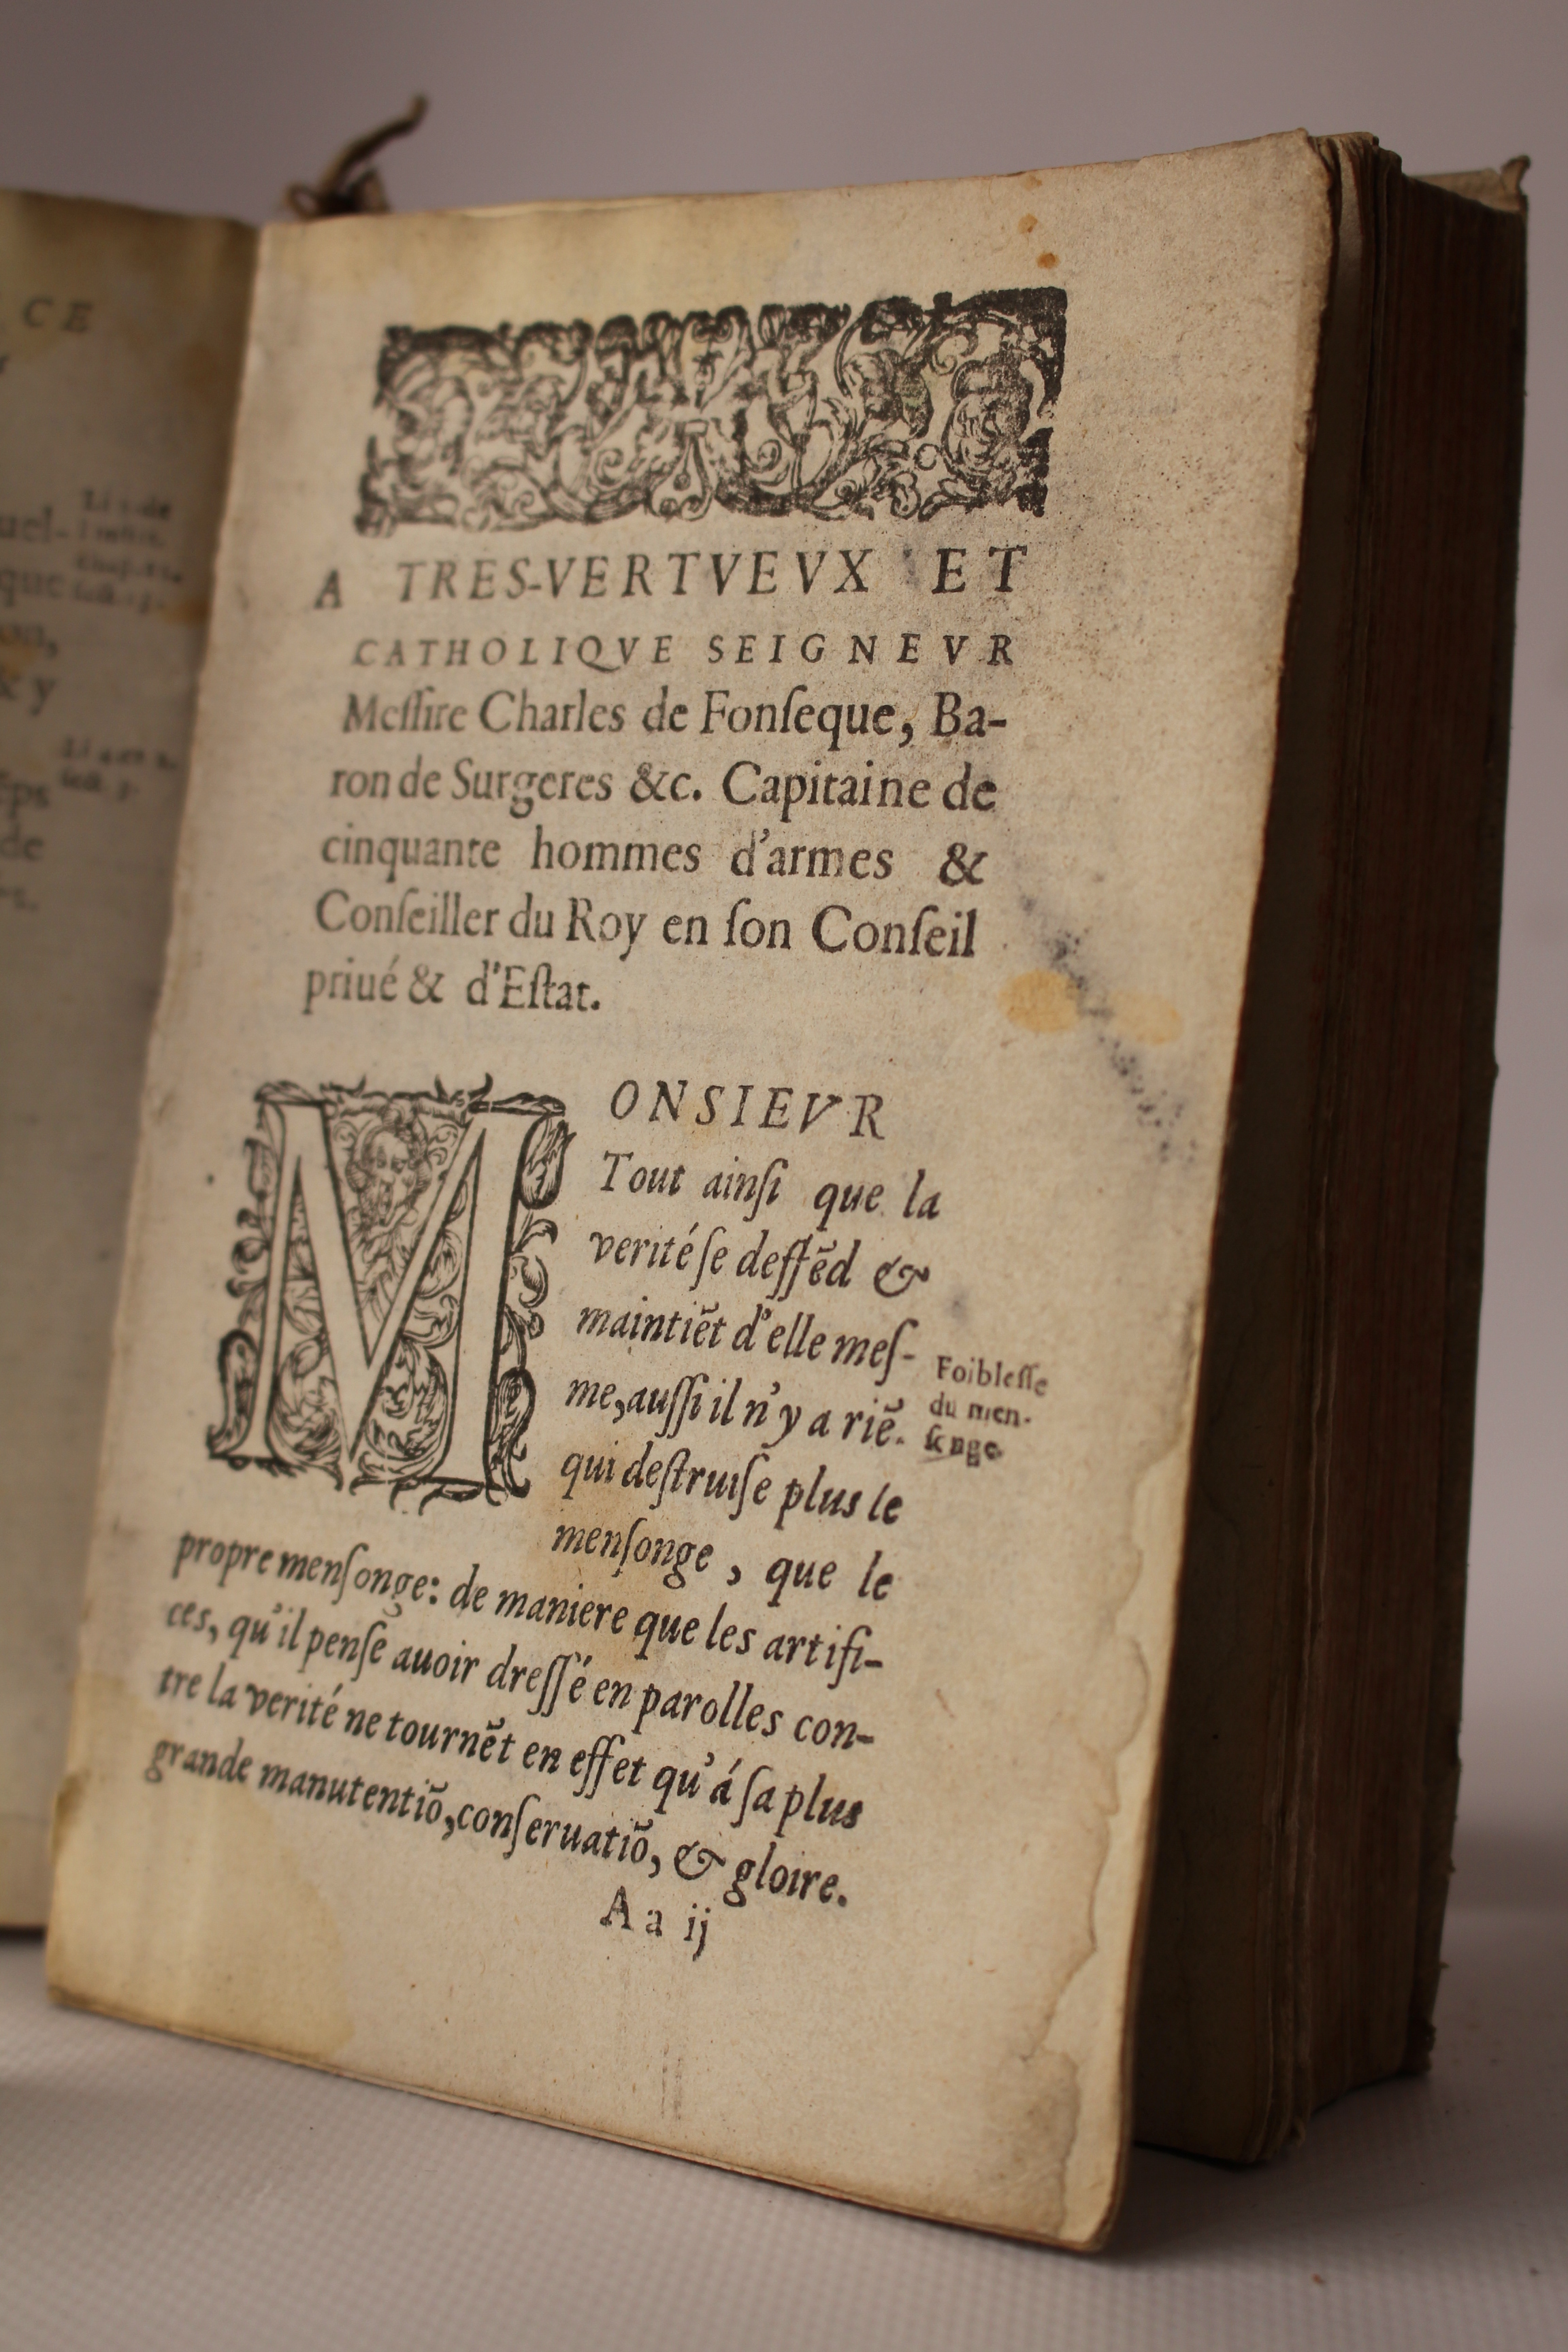 CE
uel-
que
on,
x y
ẽps
de
A TRES-VERTVEVX ET
CATHOLIQVE SEIGNEVR
Meſſire Charles de Fonſeque, Ba-
ron de Surgeres &c. Capitaine de
cinquante hommes d'armes &
Conſeiller du Roy en ſon Conſeil
priué & d'Eſtat.
MONSIEVR
Tout ainſi que la
verité ſe deffẽd &
maintiẽt d'elle meſ-
me, auſſi il n'y a riẽ.
qui deſtruiſe plus le
menſonge, que le
propre menſonge: de maniere que les artifi-
ces, qu'il penſe auoir dreſſé en parolles con-
tre la verité ne tournẽt en effet qu'á ſa plus
grande manutentiõ, conſeruatiõ, & gloire.
Foibleſſe
du men-
ſonge.
A a ij